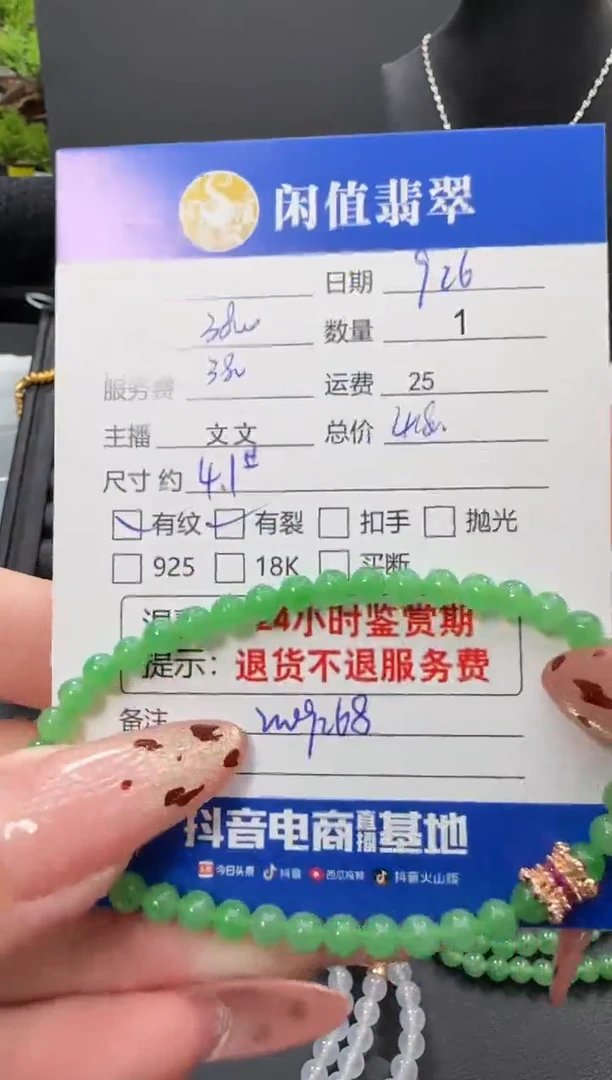 闲值翡翠
日期 926
38w 数量 1
服务费 38w 运费 25
主播 文文 总价
尺寸 约 4.1
有纹 有裂 扣手 抛光
925 18K 买断
24小时鉴赏期
提示：退货不退服务费
备注
抖音电商直播基地
今日头条 抖音 西瓜视频 抖音火山版